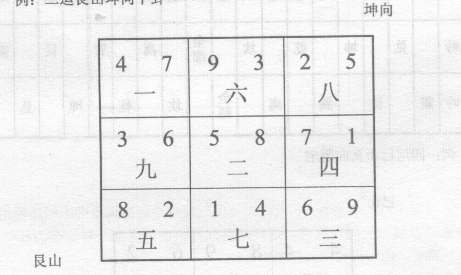 例：二运艮山坤向下卦
坤向
4 7 9 3 2 5
一 六 八
3 6 5 8 7 1
九 二 四
8 2 1 4 6 9
五 七 三
艮山